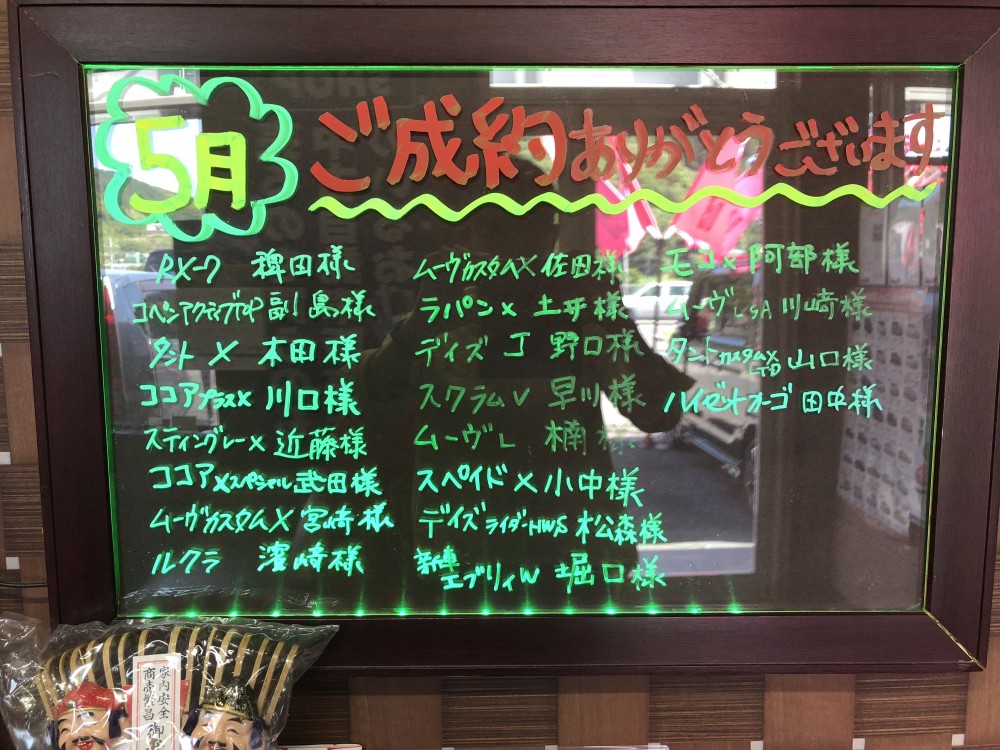 5月
ご成約ありがとうございます
Pメーク 稗田様
コペンアクティブTOP 副島様
タント X 本田様
ココアプラスX 川口様
スティングレーX 近藤様
ココアXスペシャル 武田様
ムーヴカスタムX 宮崎様
ルクラ 濱崎様
ムーヴカスタムX 佐田様
ラパンX 土井様
デイズ J 野口様
スクラムV 早川様
ムーヴL 楠様
スペイドX 小中様
デイズライダーHWS 松森様
新車エブリィW 堀口様
モコX 阿部様
ムーヴLSA 川崎様
タントカスタムX LTD 山口様
ハイゼットカーゴ 田中様
家内安全
商売繁昌
御